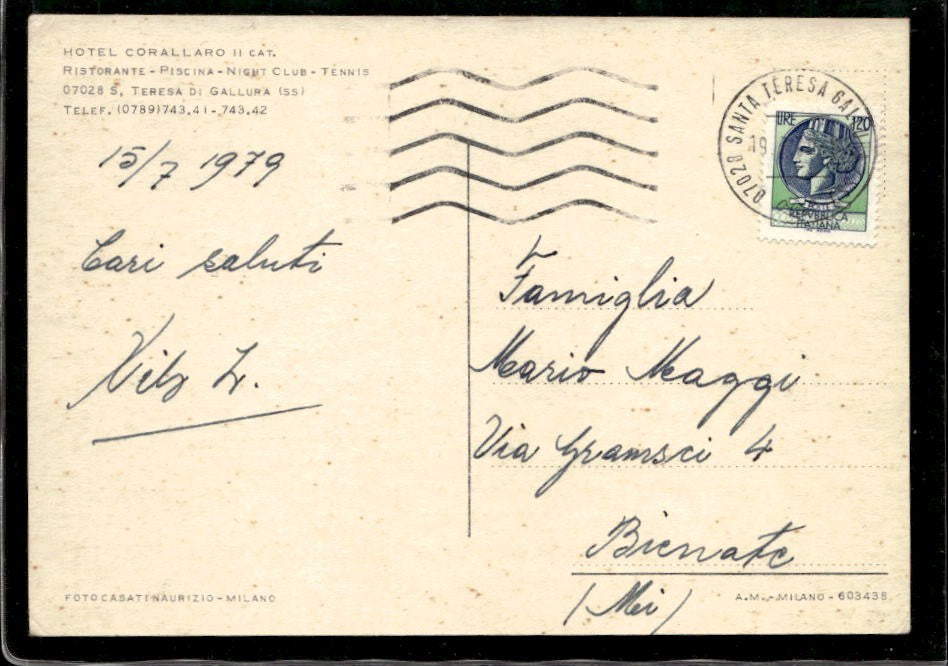 HOTEL CORALLARO II CAT.
RISTORANTE - PISCINA - NIGHT CLUB - TENNIS
07028 S. TERESA DI GALLURA (SS)
TELEF. (0789) 743.41 - 743.42
15/7 1979
Cari saluti
07028 SANTA TERESA
19
LIRE 120
POSTE
REPVBBLICA
ITALIANA
Famiglia
Mario Maggi
Via Gramsci 4
Bienate
(Mi)
FOTO CASATI NAURIZIO - MILANO
A.M. - MILANO - 603438